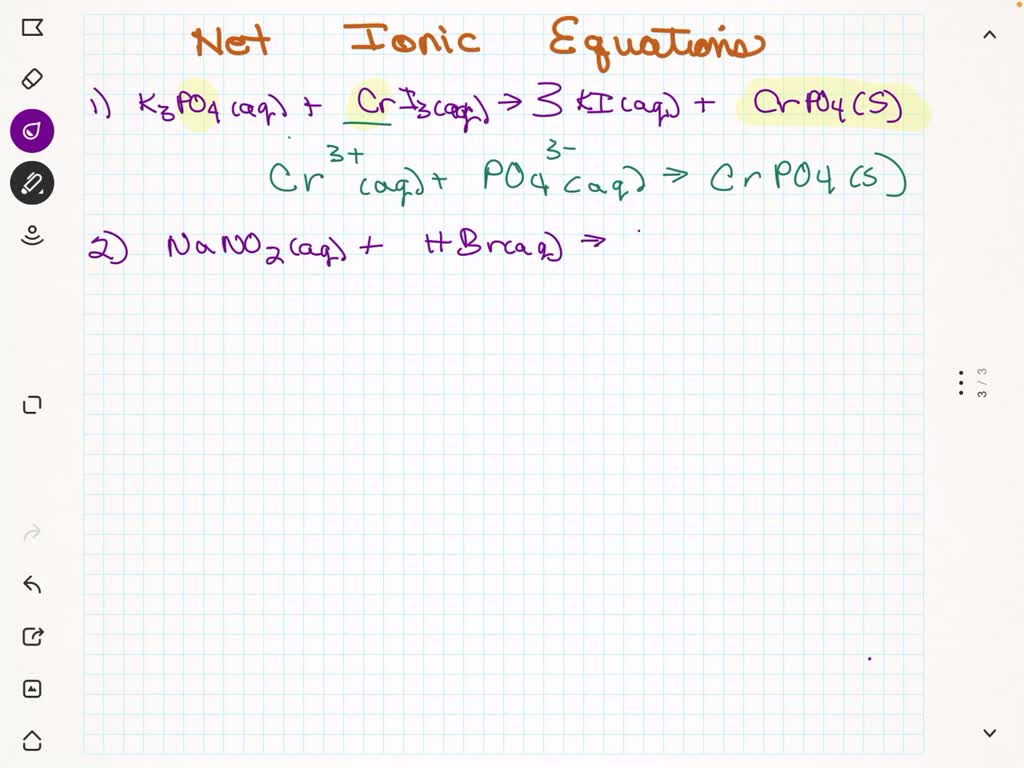 Net Ionic Equations
1) K₃PO₄(aq) + CrI₃(aq) → 3 KI(aq) + CrPO₄(s)
Cr³⁺(aq) + PO₄³⁻(aq) → CrPO₄(s)
2) NaNO₂(aq) + HBr(aq) →
3/3